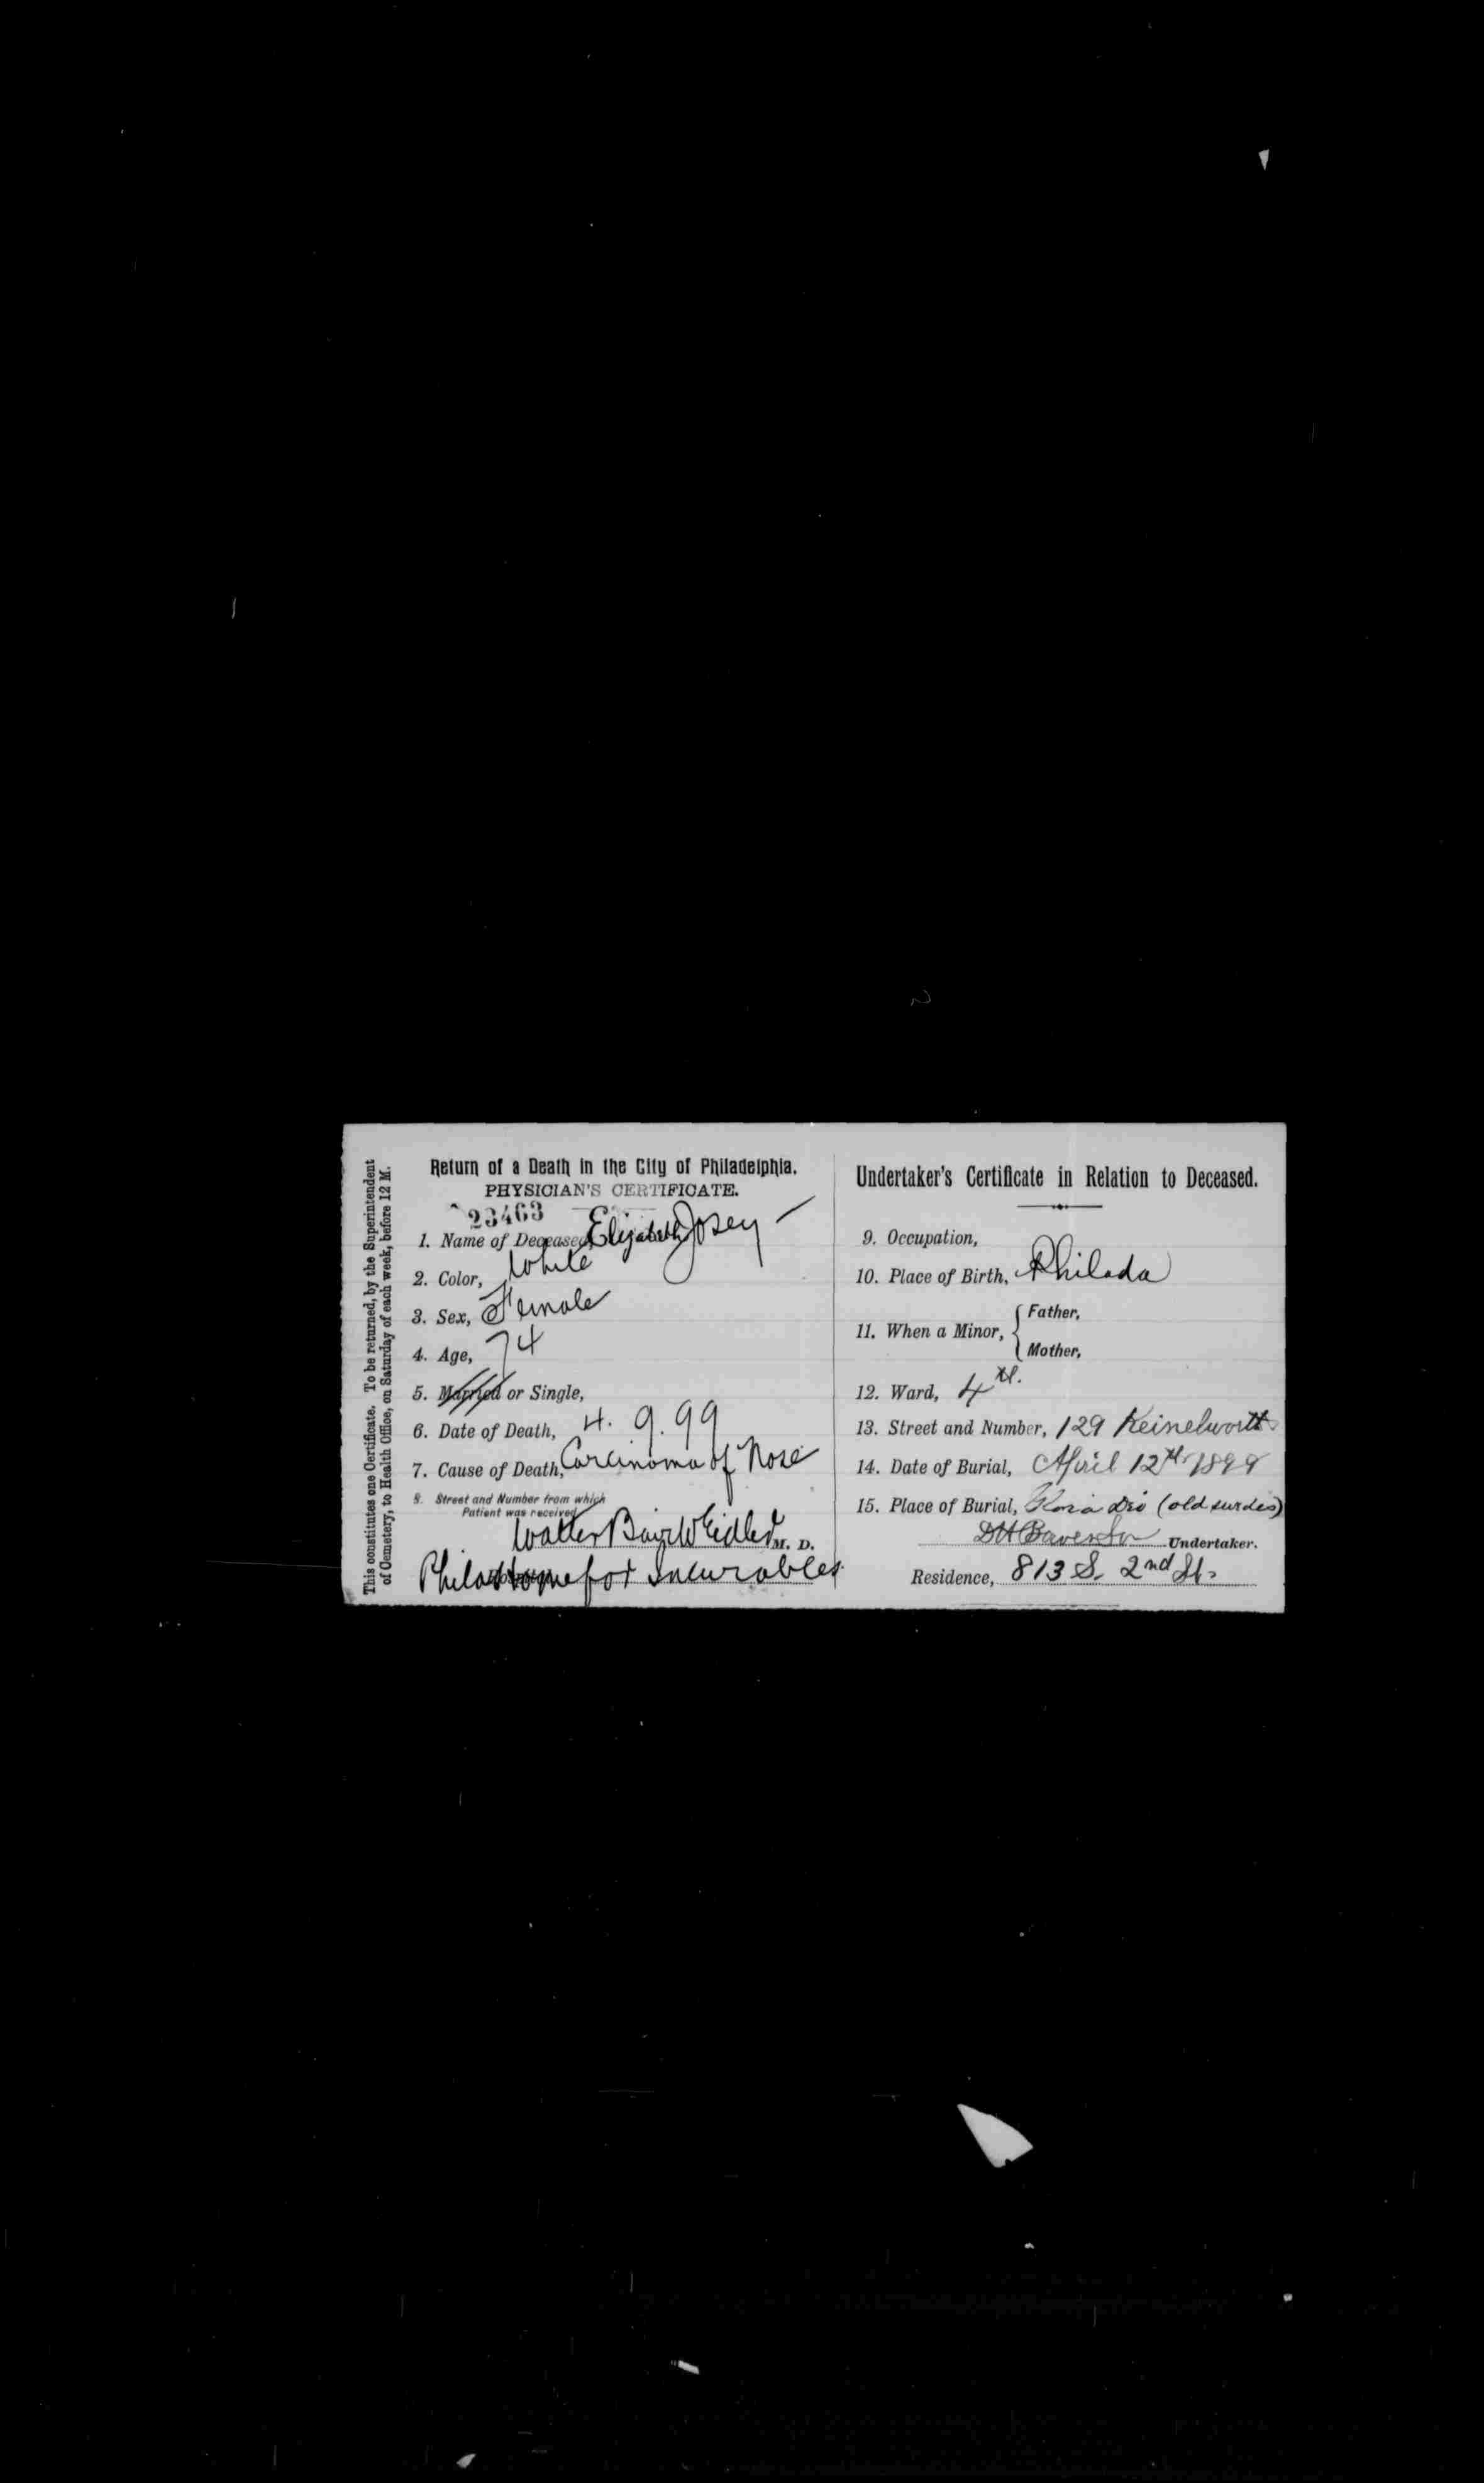 This constitutes one Certificate. To be returned, by the Superintendent
of Cemetery, to Health Office, on Saturday of each week, before 12 M.
Return of a Death in the City of Philadelphia.
PHYSICIAN'S CERTIFICATE.
23463
1. Name of Deceased, Elizabeth Josey
2. Color, White
3. Sex, Female
4. Age, 74
5. Married or Single,
6. Date of Death, 4. 9. 99
7. Cause of Death, Carcinoma of Nose
8. Street and Number from which
Patient was received,
Walter M. D.
Phila Home for Incurables
Undertaker's Certificate in Relation to Deceased.
9. Occupation,
10. Place of Birth, Philada
11. When a Minor, { Father,
Mother,
12. Ward, 4th.
13. Street and Number, 129 Keinelworth
14. Date of Burial, April 12th 1899
15. Place of Burial, Gloria Dio (old surdes)
Undertaker.
Residence, 813 S. 2nd St.